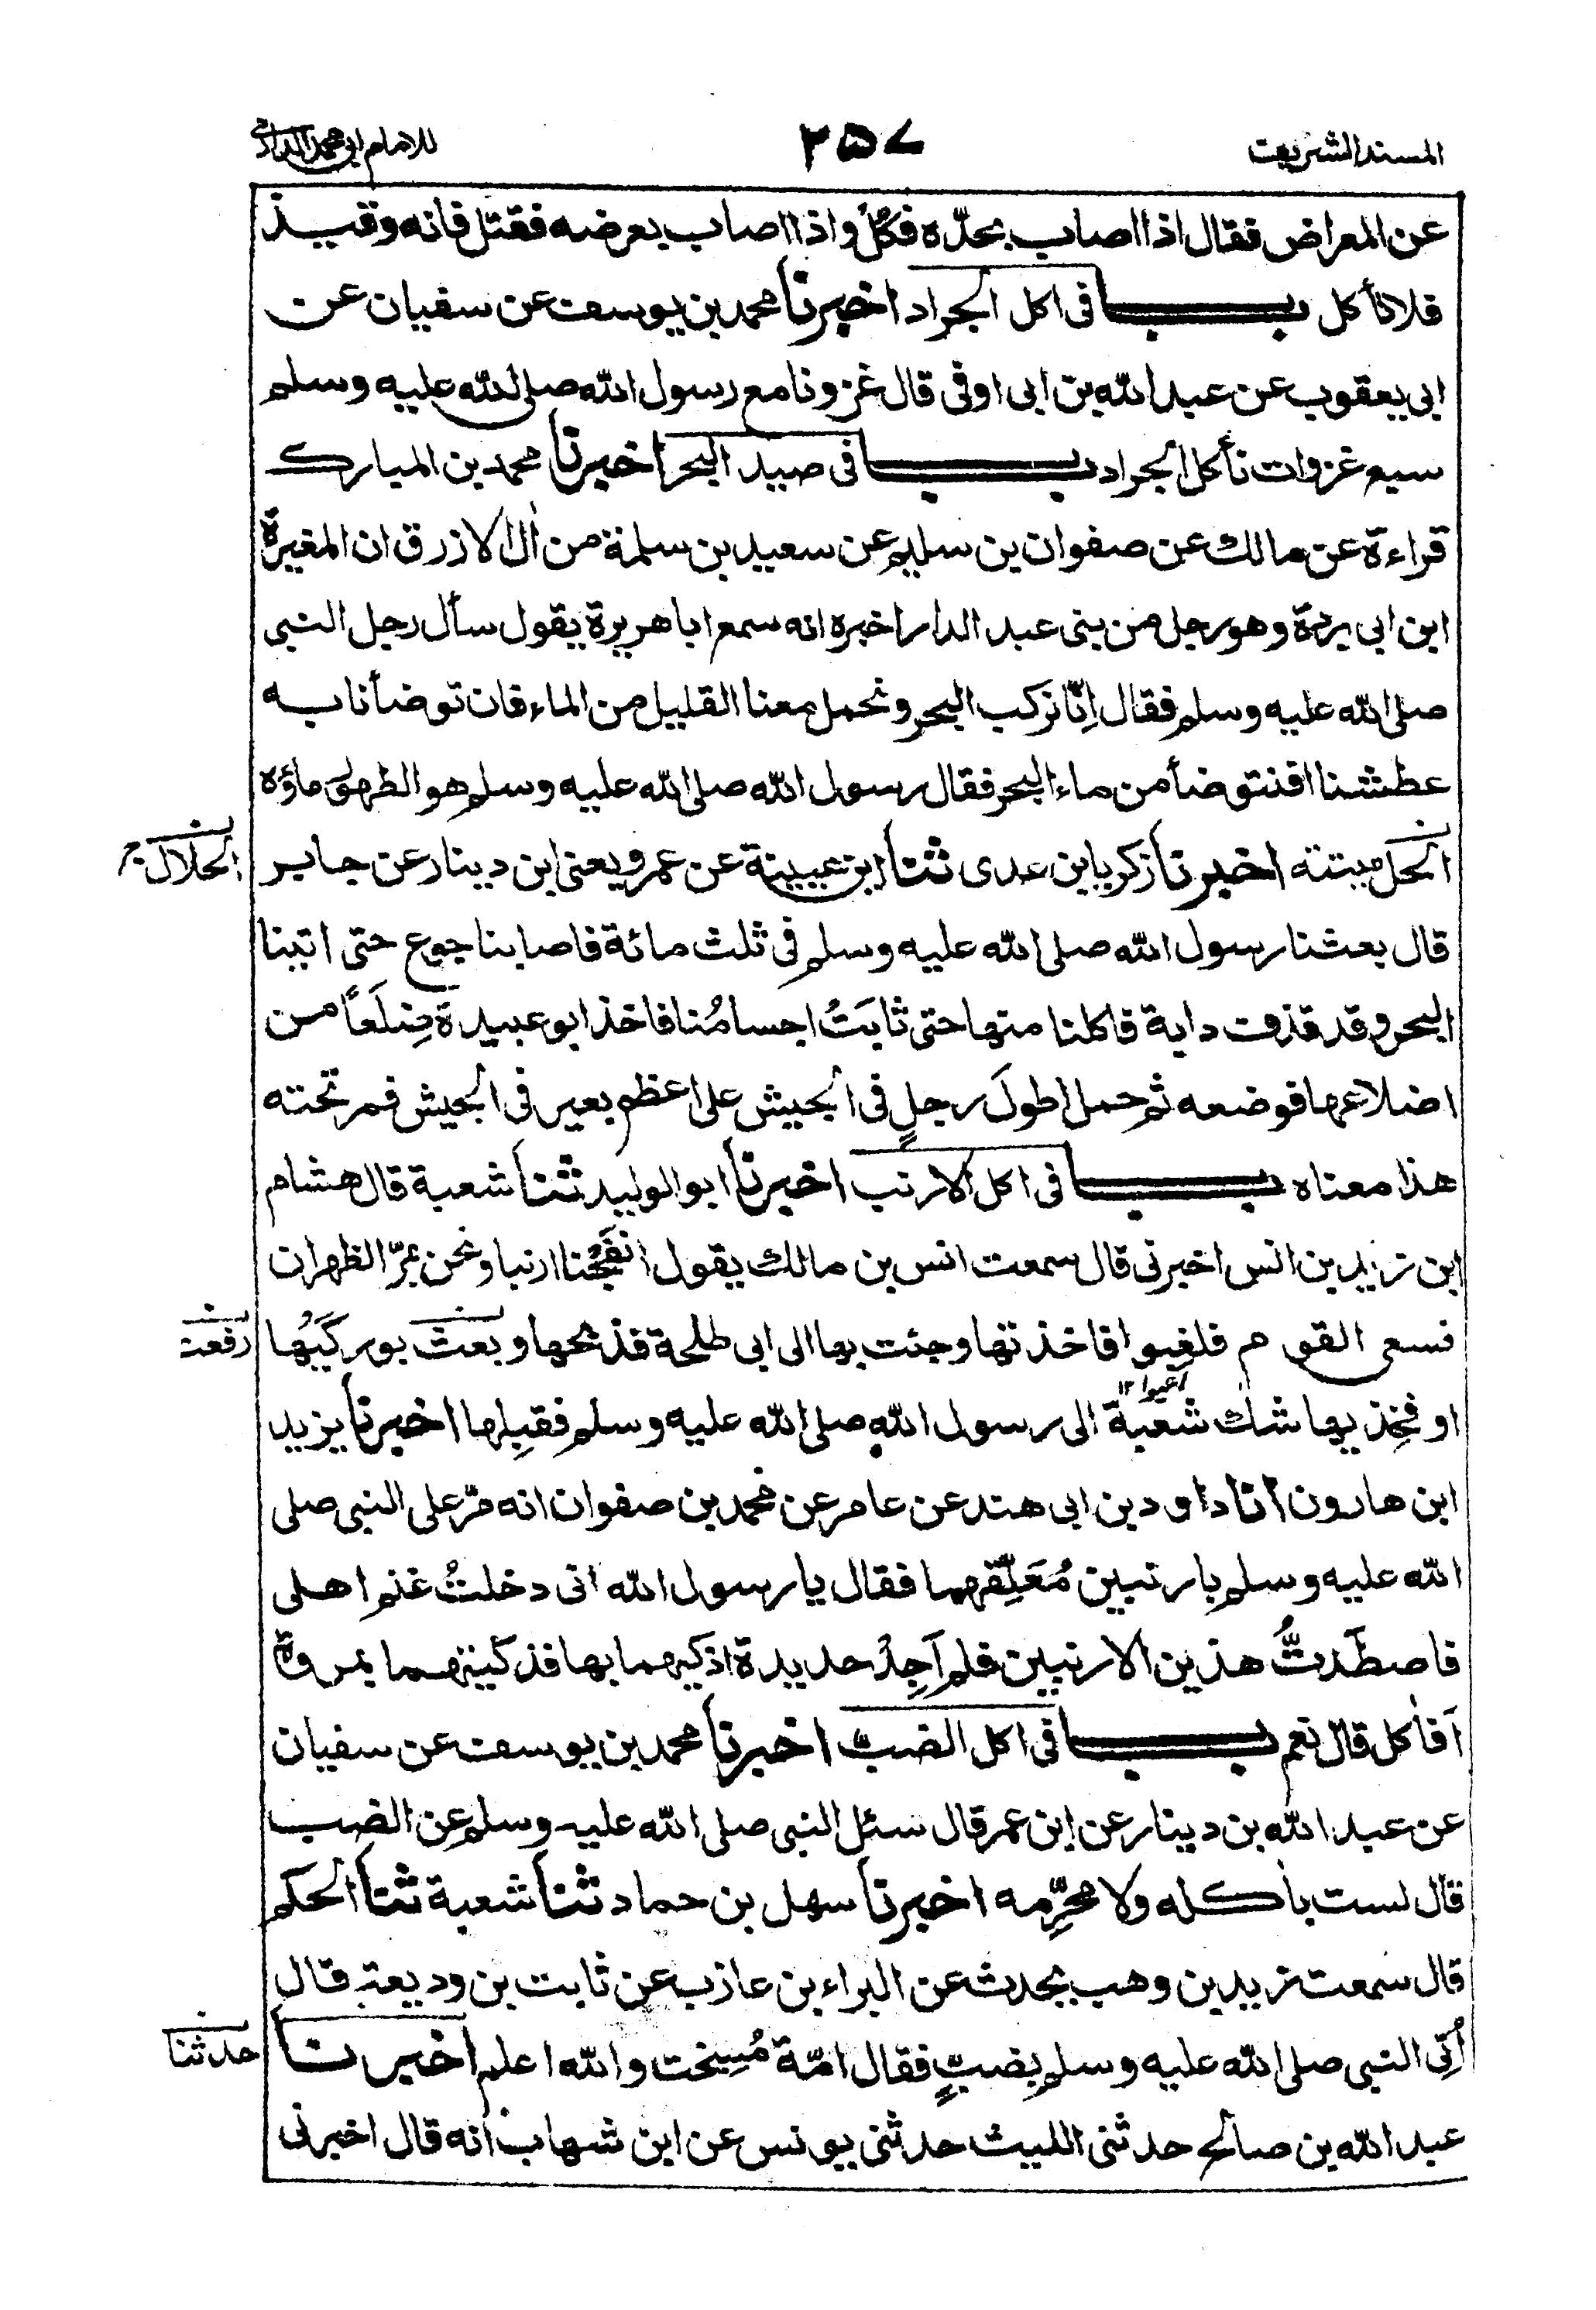 المسند الشريف
٢٥٧
للامام ابي محمد الدارمي
عن المعراض فقال اذا اصاب بحدّه فكُلْ واذا اصاب بعرضه فقتل فانه وقيذ
فلا تأكل باب فى اكل الجراد اخبرنا محمد بن يوسف عن سفيان عن
ابى يعقوب عن عبد الله بن ابى اوفى قال غزونا مع رسول الله صلى الله عليه وسلم
سبع غزوات نأكل الجراد باب فى صيد البحر اخبرنا محمد بن المبارك
قراءة عن مالك عن صفوان بن سليم عن سعيد بن سلمة من اٰل الازرق ان المغيرة
ابن ابى بردة وهو رجل من بنى عبد الدار اخبره انه سمع ابا هريرة يقول سأل رجل النبى
صلى الله عليه وسلم فقال اِنّا نركب البحر ونحمل معنا القليل من الماء فان توضأنا به
عطشنا افنتوضأ من ماء البحر فقال رسول الله صلى الله عليه وسلم هو الطهور ماؤه
الحل ميتته اخبرنا زكريا بن عدى ثنا ابن عيينة عن عمرو يعنى ابن دينار عن جابر
الحلال
قال بعثنا رسول الله صلى الله عليه وسلم فى ثلث مائة فاصابنا جوع حتى اتينا
البحر وقد قذف دابة فاكلنا منها حتى ثابَتْ اجسامُنا فاخذ ابو عبيدة ضِلَعًا من
اضلاعها فوضعه ثم حمل اطولَ رجلٍ فى الجيش على اعظم بعير فى الجيش فمر تحته
هذا معناه باب فى اكل الارنب اخبرنا ابو الوليد ثنا شعبة قال هشام
ابن زيد بن انس اخبرنى قال سمعت انس بن مالك يقول انفَجْنا ارنبا ونحن بمرّ الظهران
فسعى القوم فلغبوا فاخذتها وجئت بها الى ابى طلحة فذبحها وبعث بوركَيْها
رفعت
اعيوا ١٢
او فخِذيها شك شعبة الى رسول الله صلى الله عليه وسلم فقبِلها اخبرنا يزيد
ابن هارون انا داود بن ابى هند عن عامر عن محمد بن صفوان انه مرّ على النبى صلى
الله عليه وسلم بارنبين مُعَلِّقهما فقال يا رسول الله انى دخلتُ غنم اهلى
فاصطَدتُّ هذين الارنبين فلم اَجِدْ حديدة اذكيهما بها فذكيتهما بمروة
اَفاٰكل قال نعم باب فى اكل الضب اخبرنا محمد بن يوسف عن سفيان
عن عبد الله بن دينار عن ابن عمر قال سئل النبى صلى الله عليه وسلم عن الضب
قال لست باٰكله ولا محرِّمه اخبرنا سهل بن حماد ثنا شعبة ثنا الحكم
قال سمعت زيد بن وهب يحدث عن البراء بن عازب عن ثابت بن وديعة قال
اُتِى النبى صلى الله عليه وسلم بضبٍّ فقال امّة مُسِخت والله اعلم اخبرنا
حدثنا
عبد الله بن صالح حدثنى الليث حدثنى يونس عن ابن شهاب انه قال اخبرنى